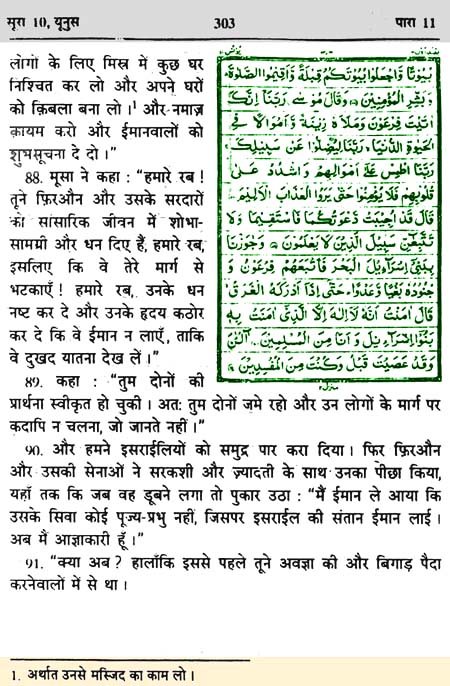 सूरा 10, यूनुस 303 पारा 11
लोगों के लिए मिस्र में कुछ घर
निश्चित कर लो और अपने घरों
को क़िबला बना लो।¹ और नमाज़
क़ायम करो और ईमानवालों को
शुभसूचना दे दो।”
88. मूसा ने कहा : “हमारे रब!
तूने फ़िरऔन और उसके सरदारों
को सांसारिक जीवन में शोभा-
सामग्री और धन दिए हैं, हमारे रब,
इसलिए कि वे तेरे मार्ग से
भटकाएँ! हमारे रब, उनके धन
नष्ट कर दे और उनके हृदय कठोर
कर दे कि वे ईमान न लाएँ, ताकि
वे दुखद यातना देख लें।”
بُيُوتًا وَّاجْعَلُوا بُيُوتَكُمْ قِبْلَةً وَّأَقِيمُوا الصَّلٰوةَ
وَبَشِّرِ الْمُؤْمِنِينَ وَقَالَ مُوسٰى رَبَّنَا إِنَّكَ
اٰتَيْتَ فِرْعَوْنَ وَمَلَأَهٗ زِينَةً وَّأَمْوَالًا فِي
الْحَيٰوةِ الدُّنْيَا رَبَّنَا لِيُضِلُّوا عَنْ سَبِيلِكَ
رَبَّنَا اطْمِسْ عَلٰى أَمْوَالِهِمْ وَاشْدُدْ عَلٰى
قُلُوبِهِمْ فَلَا يُؤْمِنُوا حَتّٰى يَرَوُا الْعَذَابَ الْأَلِيمَ
قَالَ قَدْ أُجِيبَتْ دَّعْوَتُكُمَا فَاسْتَقِيمَا وَلَا
تَتَّبِعٰٓنِّ سَبِيلَ الَّذِينَ لَا يَعْلَمُونَ وَجٰوَزْنَا
بِبَنِي إِسْرَاءِيلَ الْبَحْرَ فَأَتْبَعَهُمْ فِرْعَوْنُ وَ
جُنُودُهٗ بَغْيًا وَّعَدْوًا حَتّٰى إِذَا أَدْرَكَهُ الْغَرَقُ
قَالَ اٰمَنْتُ أَنَّهٗ لَا إِلٰهَ إِلَّا الَّذِي اٰمَنَتْ بِهٖ
بَنُوا إِسْرَاءِيلَ وَأَنَا مِنَ الْمُسْلِمِينَ اٰلْـٰٔنَ
وَقَدْ عَصَيْتَ قَبْلُ وَكُنْتَ مِنَ الْمُفْسِدِينَ
89. कहा : “तुम दोनों की
प्रार्थना स्वीकृत हो चुकी। अतः तुम दोनों जमे रहो और उन लोगों के मार्ग पर
कदापि न चलना, जो जानते नहीं।”
90. और हमने इसराईलियों को समुद्र पार करा दिया। फिर फ़िरऔन
और उसकी सेनाओं ने सरकशी और ज़्यादती के साथ उनका पीछा किया,
यहाँ तक कि जब वह डूबने लगा तो पुकार उठा : “मैं ईमान ले आया कि
उसके सिवा कोई पूज्य-प्रभु नहीं, जिसपर इसराईल की संतान ईमान लाई।
अब मैं आज्ञाकारी हूँ।”
91. “क्या अब? हालाँकि इससे पहले तूने अवज्ञा की और बिगाड़ पैदा
करनेवालों में से था।
1. अर्थात उनसे मस्जिद का काम लो।